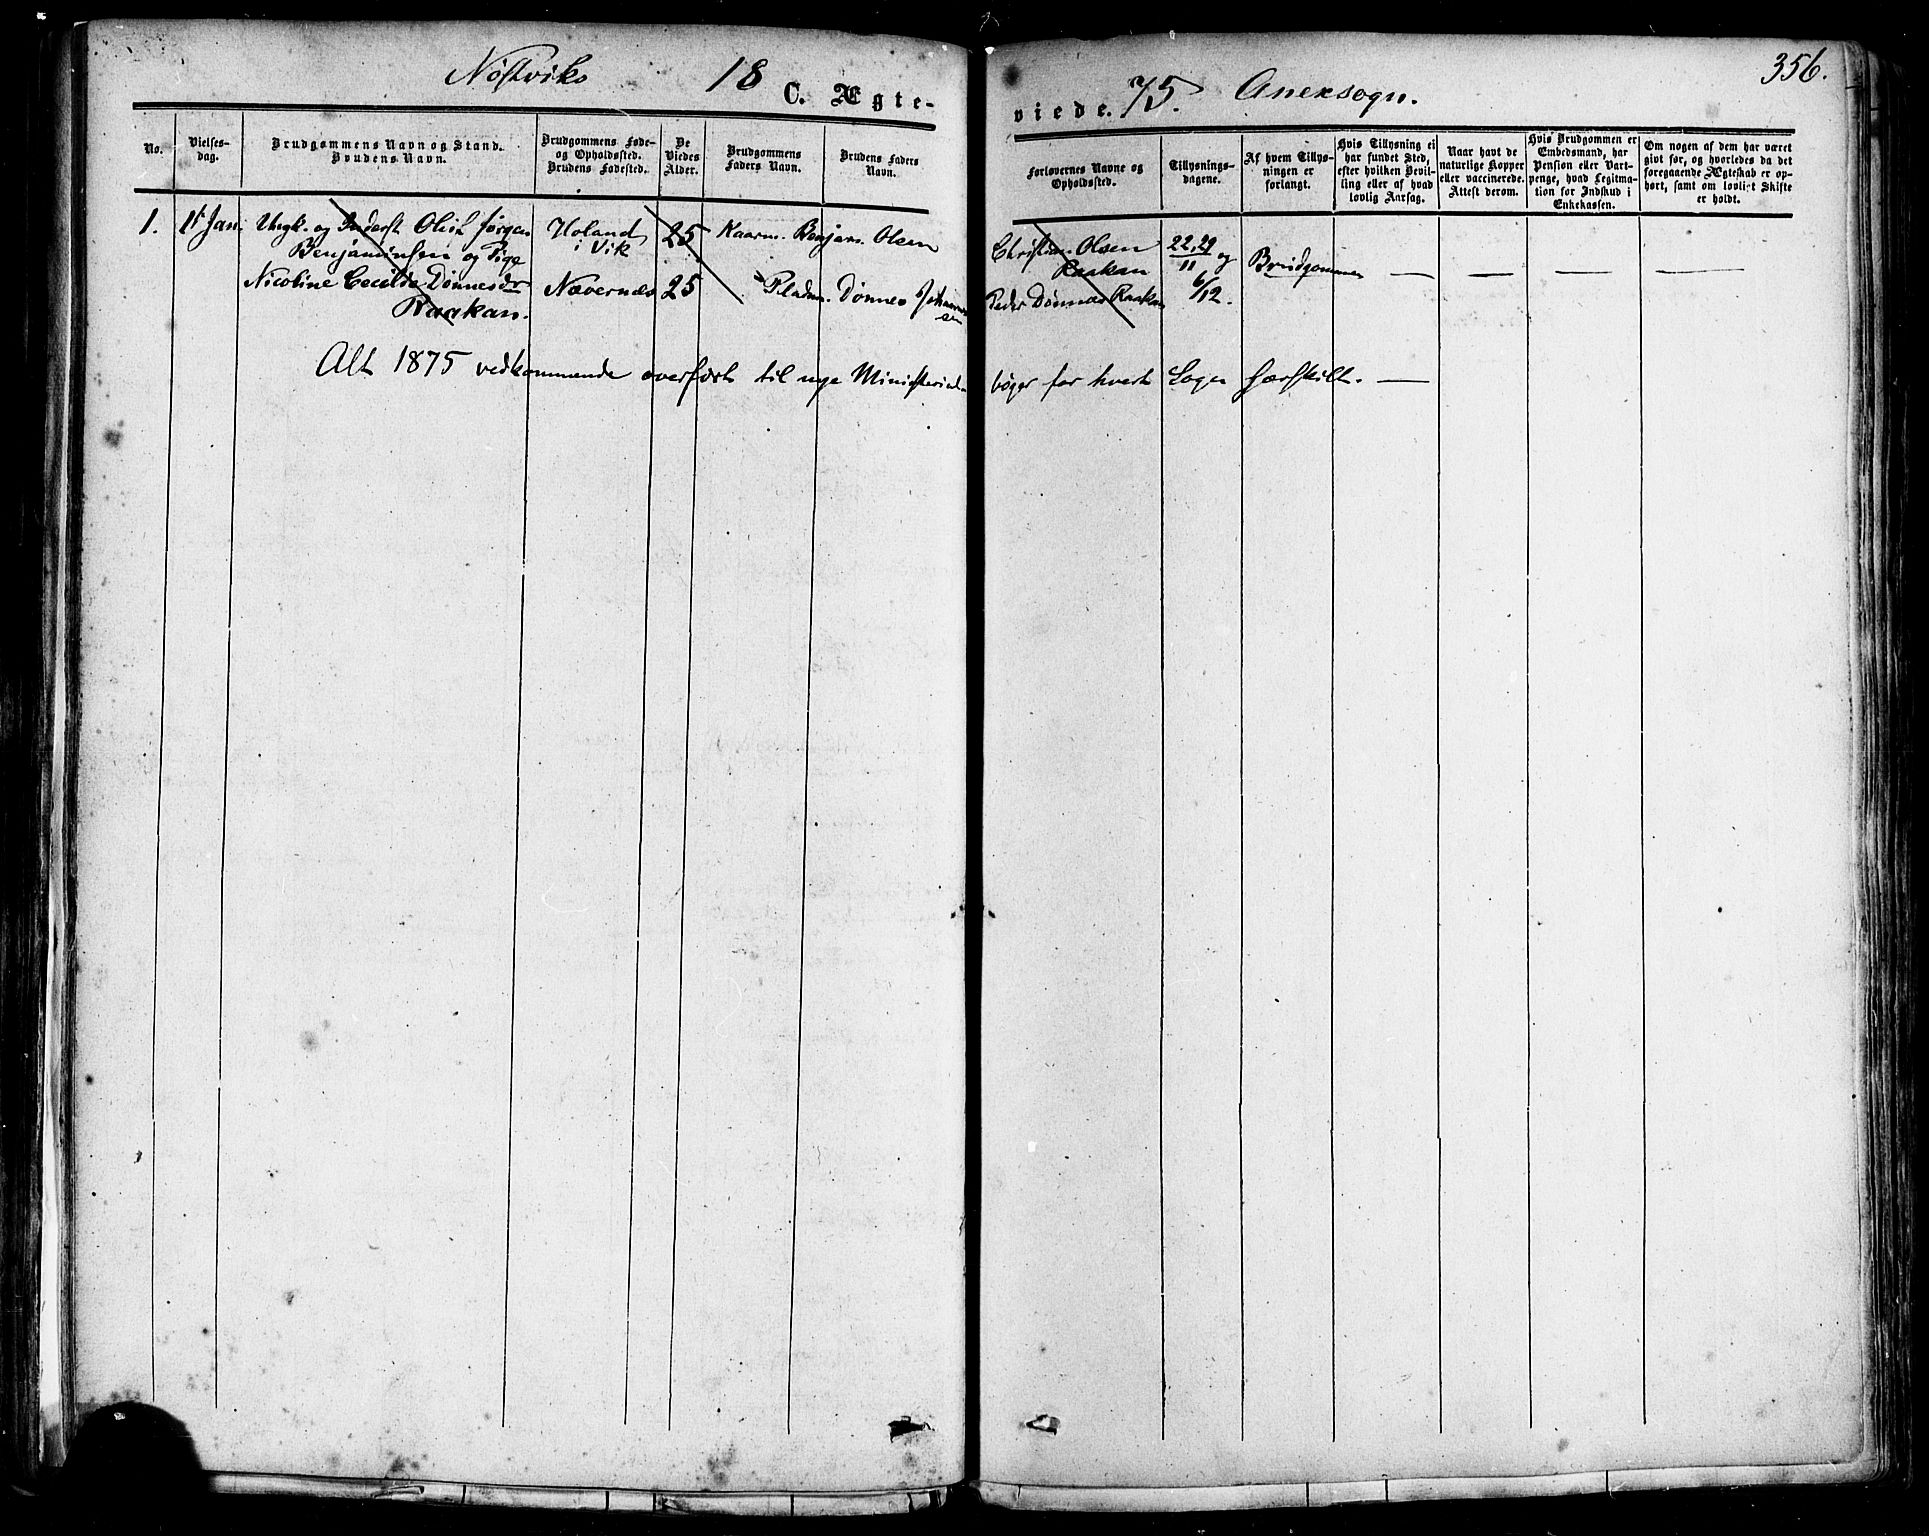 Nøstviks 18 C. Ægte-
viede. 75. Anexsogn. 356.
No.
Vielses-
dag.
Brudgommens Navn og Stand.
Brudens Navn.
Brudgommens Føde-
og Opholdssted.
Brudens Fødested.
De
Viedes
Alder.
Brudgommens
Faders Navn.
Brudens Faders
Navn.
Forlovernes Navne og
Opholdssted.
Tillysnings-
dagene.
Af hvem Tillys-
ningen er
forlangt.
Hvis Tillysning ei
har fundet Sted,
efter hvilken Bevil-
ling eller af hvad
lovlig Aarsag.
Naar havt de
naturlige Kopper
eller vaccinerede.
Attest derom.
Hvis Brudgommen er
Embedsmand, har
Pension eller Vart-
penge, hvad Legitima-
tion for Indskud i
Enkekassen.
Om nogen af dem har været
givt før, og hvorledes da det
foregaaende Ægteskab er op-
hørt, samt om lovligt Skifte
er holdt.
1. 1st Jan. Ungk. og Inderst Oluf Jørgen Holand 25 Kaarm. Benjam. Olsen Christian Olsen 22, 29
Benjaminsen og Pige i Vik Raakan 11 og Brudgommen — — — —
Nicoline Cecilde Dønnesdr Nævernes 25 Pladsm. Dønnes Johannes Peder Dønnes Raakan 6/12.
Raakan. sen
Alt 1875 vedkommende overført til nye Ministerial bøger for hvert Sogn særskilt. —